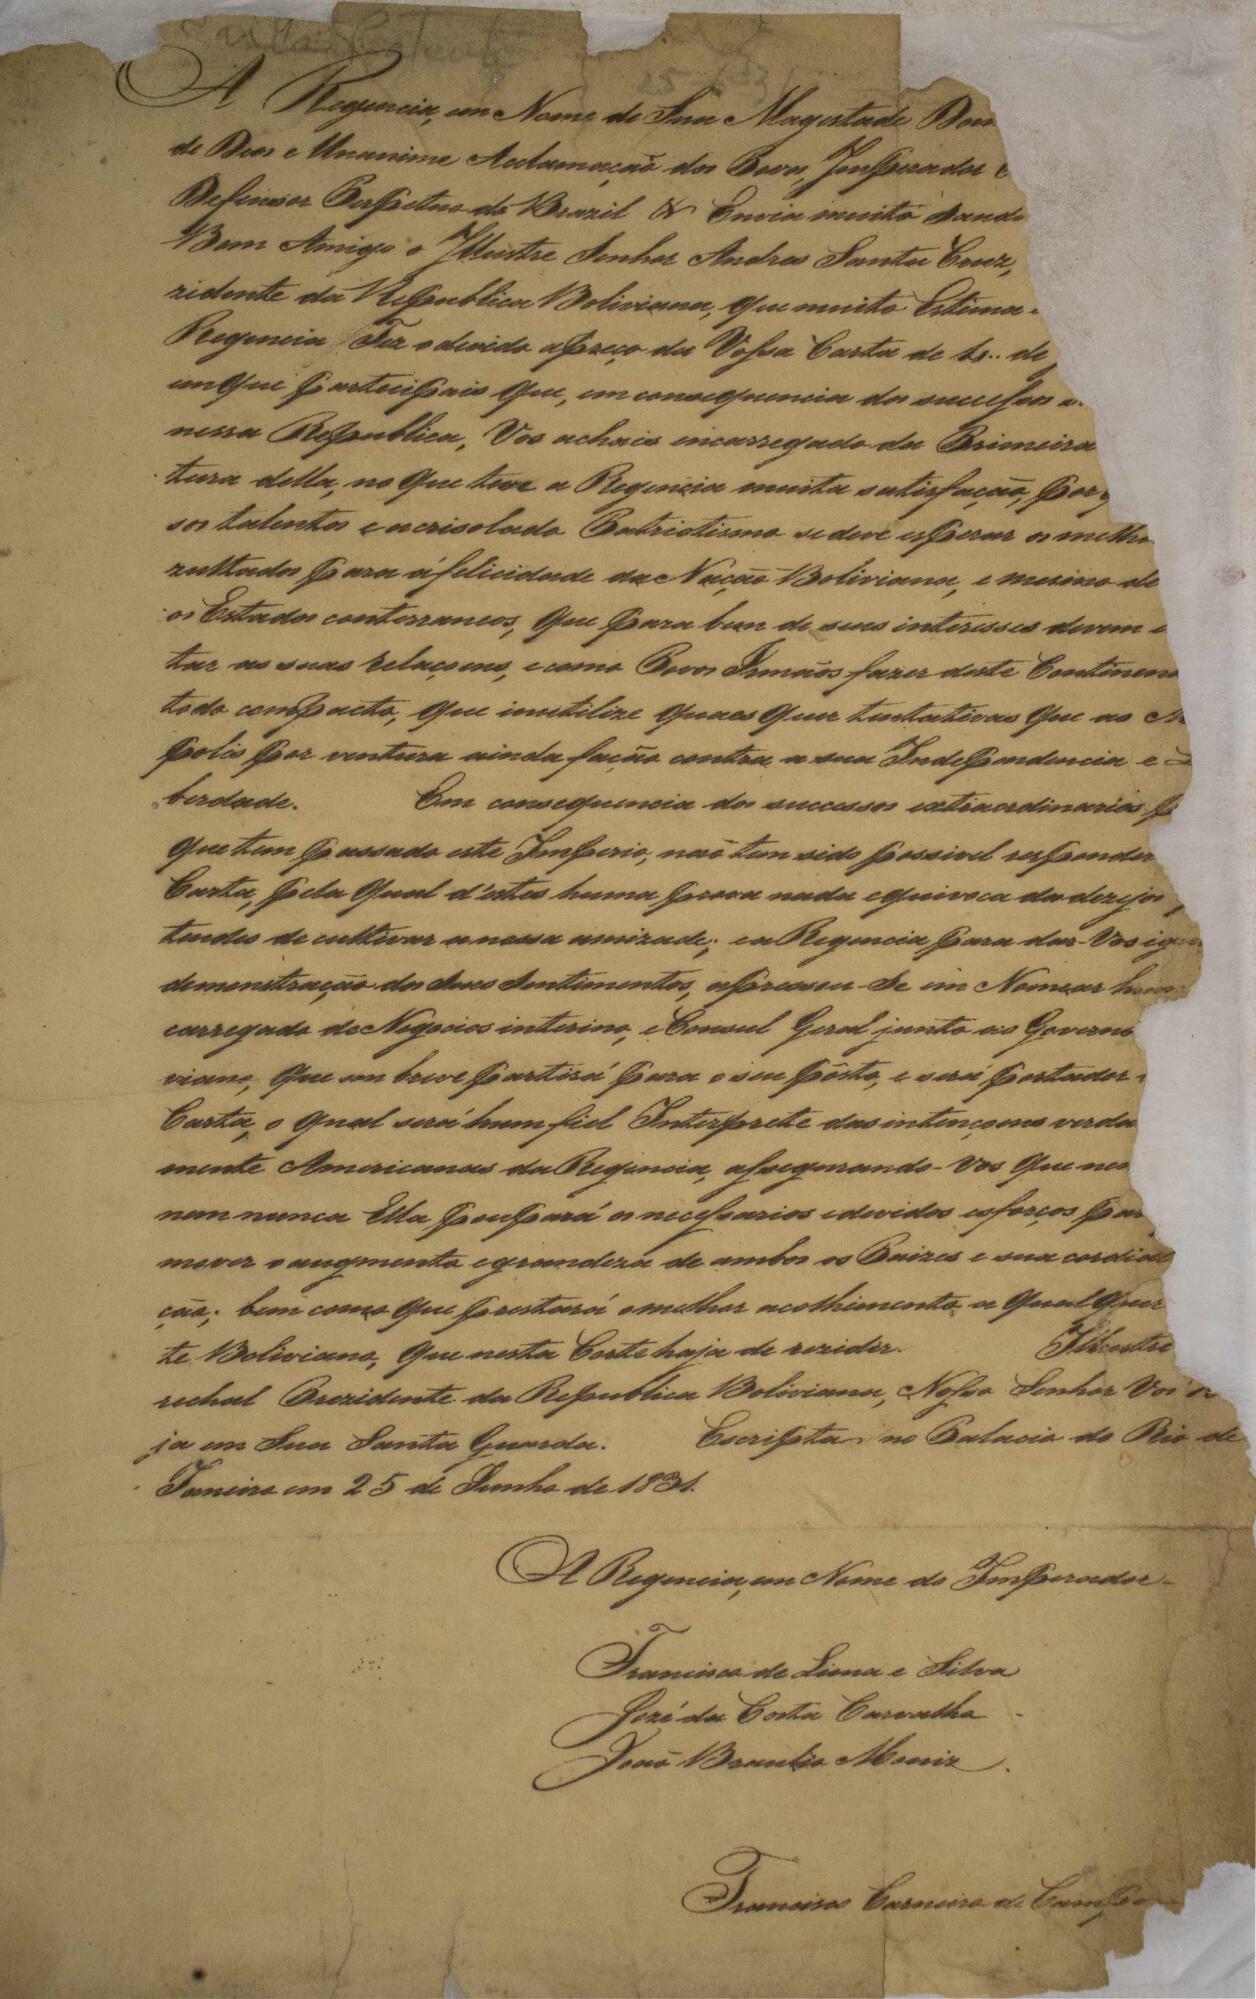 25 6 31
A Regencia, em Nome de Sua Magestade Dom
de Deos e Unanime Acclamação dos Povos, Imperador
Defensor Perpetuo do Brazil &c Envia muito Saudar
Bom Amigo o Illustre Senhor Andres Santa Cruz,
zidente da Republica Boliviana, que muito Estima
Regencia Fez o devido apreço da Vossa Carta de de
em que participais que, em consequencia dos successos
nessa Republica, Vos achais encarregado da Primeira
tura della, no que teve a Regencia muita satisfação, por
sos talentos e acrisolado Patriotismo se deve esperar os melho
zultados para á felicidade da Nação Boliviana, e mesmo de
os Estados conterraneos, que para bem de seus interesses devem
tar as suas relaçoens, e como Povos Irmãos fazer deste Continen
todo compacto, que inutilize quaes quer tentativas que as M
polis por ventura ainda fação contra a sua Independencia e
berdade. Em consequencia dos successos extraordinarios p
que tem passado este Imperio, não tem sido possivel responder
Carta, pela qual d'estes huma prova nada equivoca do dezejo
tendes de cultivar a nossa amizade; e a Regencia para dar-Vos igu
demonstração dos Seus Sentimentos, apressou-Se em Nomear hum
carregado de Negocios interino, e Consul Geral junto ao Governo
viano, que em breve partirá para o seu pôsto, e será portador
Carta, o qual será hum fiel Interprete das intençoens verda
mente Americanas da Regencia, assegurando-Vos que nem
nem nunca Ella poupará os necessarios e devidos esforços par
mover o augmento e grandeza de ambos os Paizes e sua cordial
ção; bem como que prestará o melhor acolhimento a qual quer
te Boliviano, que nesta Corte haja de rezidir. Illustre
rechal Prezidente da Republica Boliviana, Nosso Senhor Vos
ja em Sua Santa Guarda. Escripta no Palacio do Rio de
Janeiro em 25 de Junho de 1831.
A Regencia, em Nome do Imperador
Francisco de Lima e Silva
Jozé da Costa Carvalho
João Braulio Moniz
Francisco Carneiro de Campo